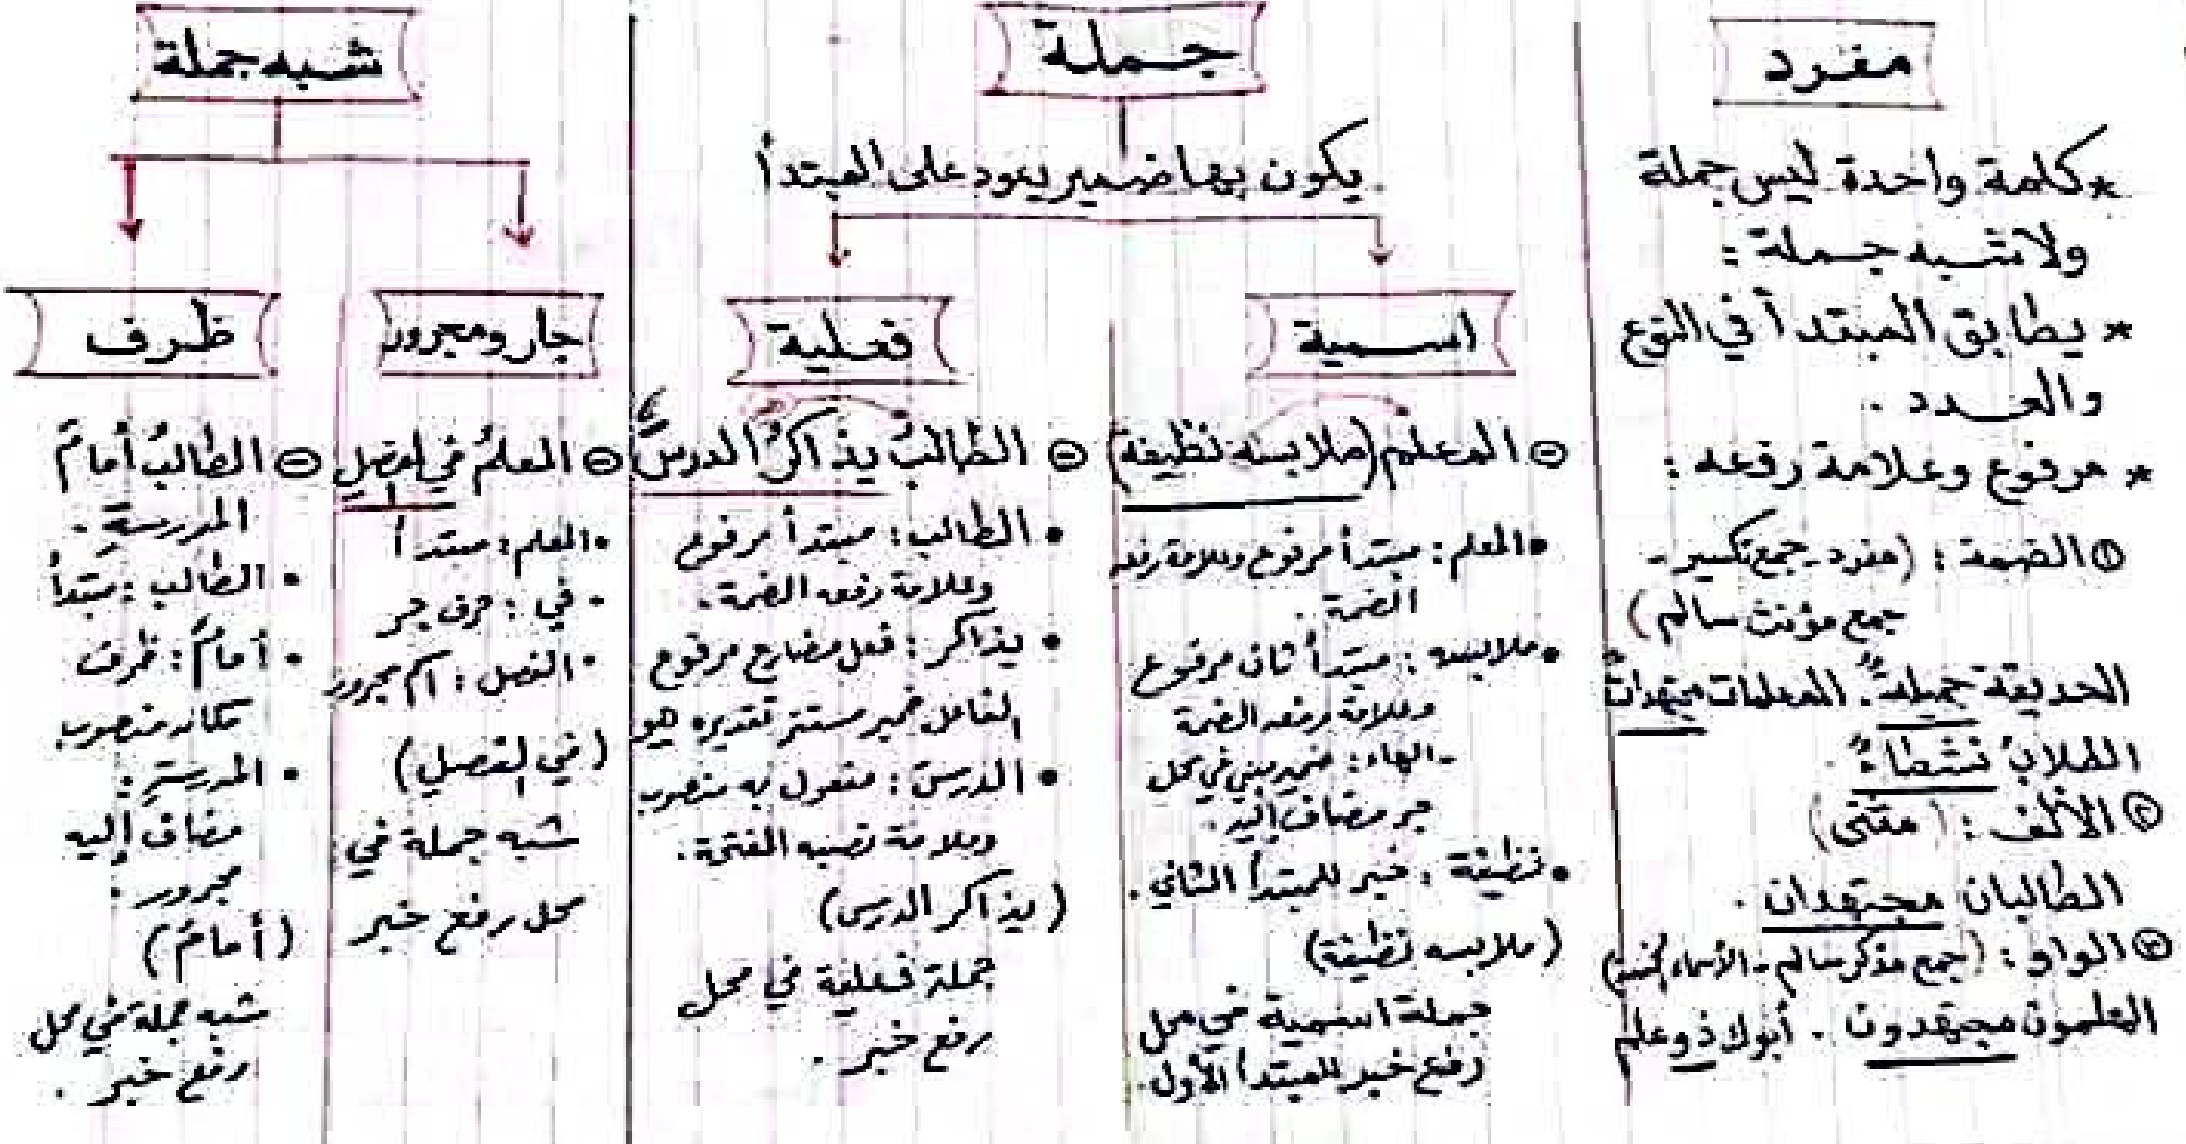 مفرد
*كلمة واحدة ليس جملة
ولا شبه جملة :
* يطابق المبتدأ في النوع
والعدد .
* مرفوع وعلامة رفعه :
① الضمة : (مفرد - جمع تكسير -
جمع مؤنث سالم)
الحديقة جميلةٌ . المعلمات مجتهداتٌ
الطلابُ نشطاءٌ .
② الألف : (مثنى)
الطالبان مجتهدان .
③ الواو : (جمع مذكر سالم - الأسماء الخمسة)
المعلمون مجتهدون . أبوك ذو علم
جملة
يكون بها ضمير يعود على المبتدأ
اسمية
⊖ المعلم (ملابسه نظيفة)
• المعلم : مبتدأ مرفوع وعلامة رفعه
الضمة .
• ملابسه : مبتدأ ثان مرفوع
وعلامة رفعه الضمة
- الهاء : ضمير مبني في محل
جر مضاف إليه .
• نظيفة : خبر للمبتدأ الثاني .
(ملابسه نظيفة)
جملة اسمية في محل
رفع خبر للمبتدأ الأول .
فعلية
⊖ الطالبُ يذاكرُ الدرسَ
• الطالب : مبتدأ مرفوع
وعلامة رفعه الضمة .
• يذاكر : فعل مضارع مرفوع
الفاعل ضمير مستتر تقديره هو
• الدرسَ : مفعول به منصوب
وعلامة نصبه الفتحة .
(يذاكر الدرس)
جملة فعلية في محل
رفع خبر .
شبه جملة
جار ومجرور
⊖ المعلمُ في الفصلِ
• المعلم : مبتدأ
• في : حرف جر
• الفصل : اسم مجرور
(في الفصلِ)
شبه جملة في
محل رفع خبر
ظرف
⊖ الطالبُ أمامَ
المدرسةِ .
• الطالب : مبتدأ
• أمامَ : ظرف
مكان منصوب
• المدرسةِ :
مضاف إليه
مجرور .
(أمامَ)
شبه جملة في محل
رفع خبر .